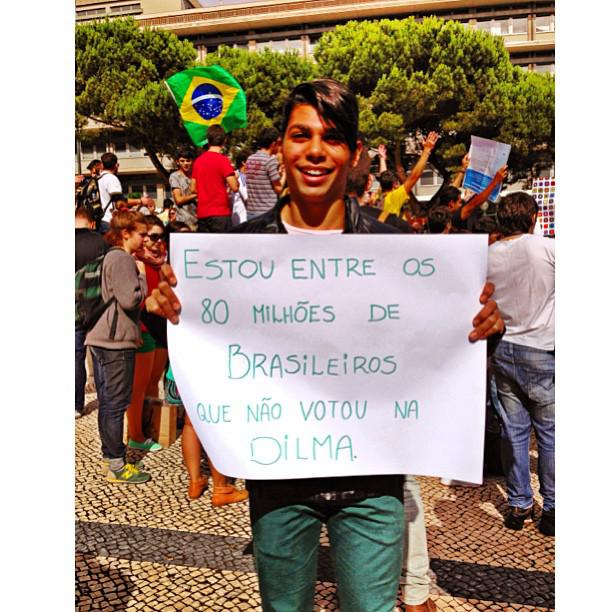 ESTOU ENTRE OS
80 MILHÕES DE
BRASILEIROS
QUE NÃO VOTOU NA
DILMA.